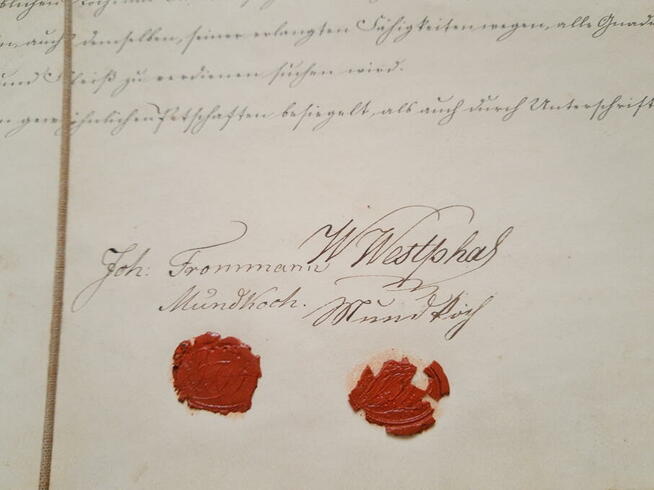 in, auch demselben, seiner erlangten Fähigkeiten wegen, alle Gnade
und Fleiß zu verdienen suchen wird.
n gewöhnlichen Petschaften besiegelt, als auch durch Unterschrift
Joh: Frommann W Westphal
Mundkoch. Mundkoch